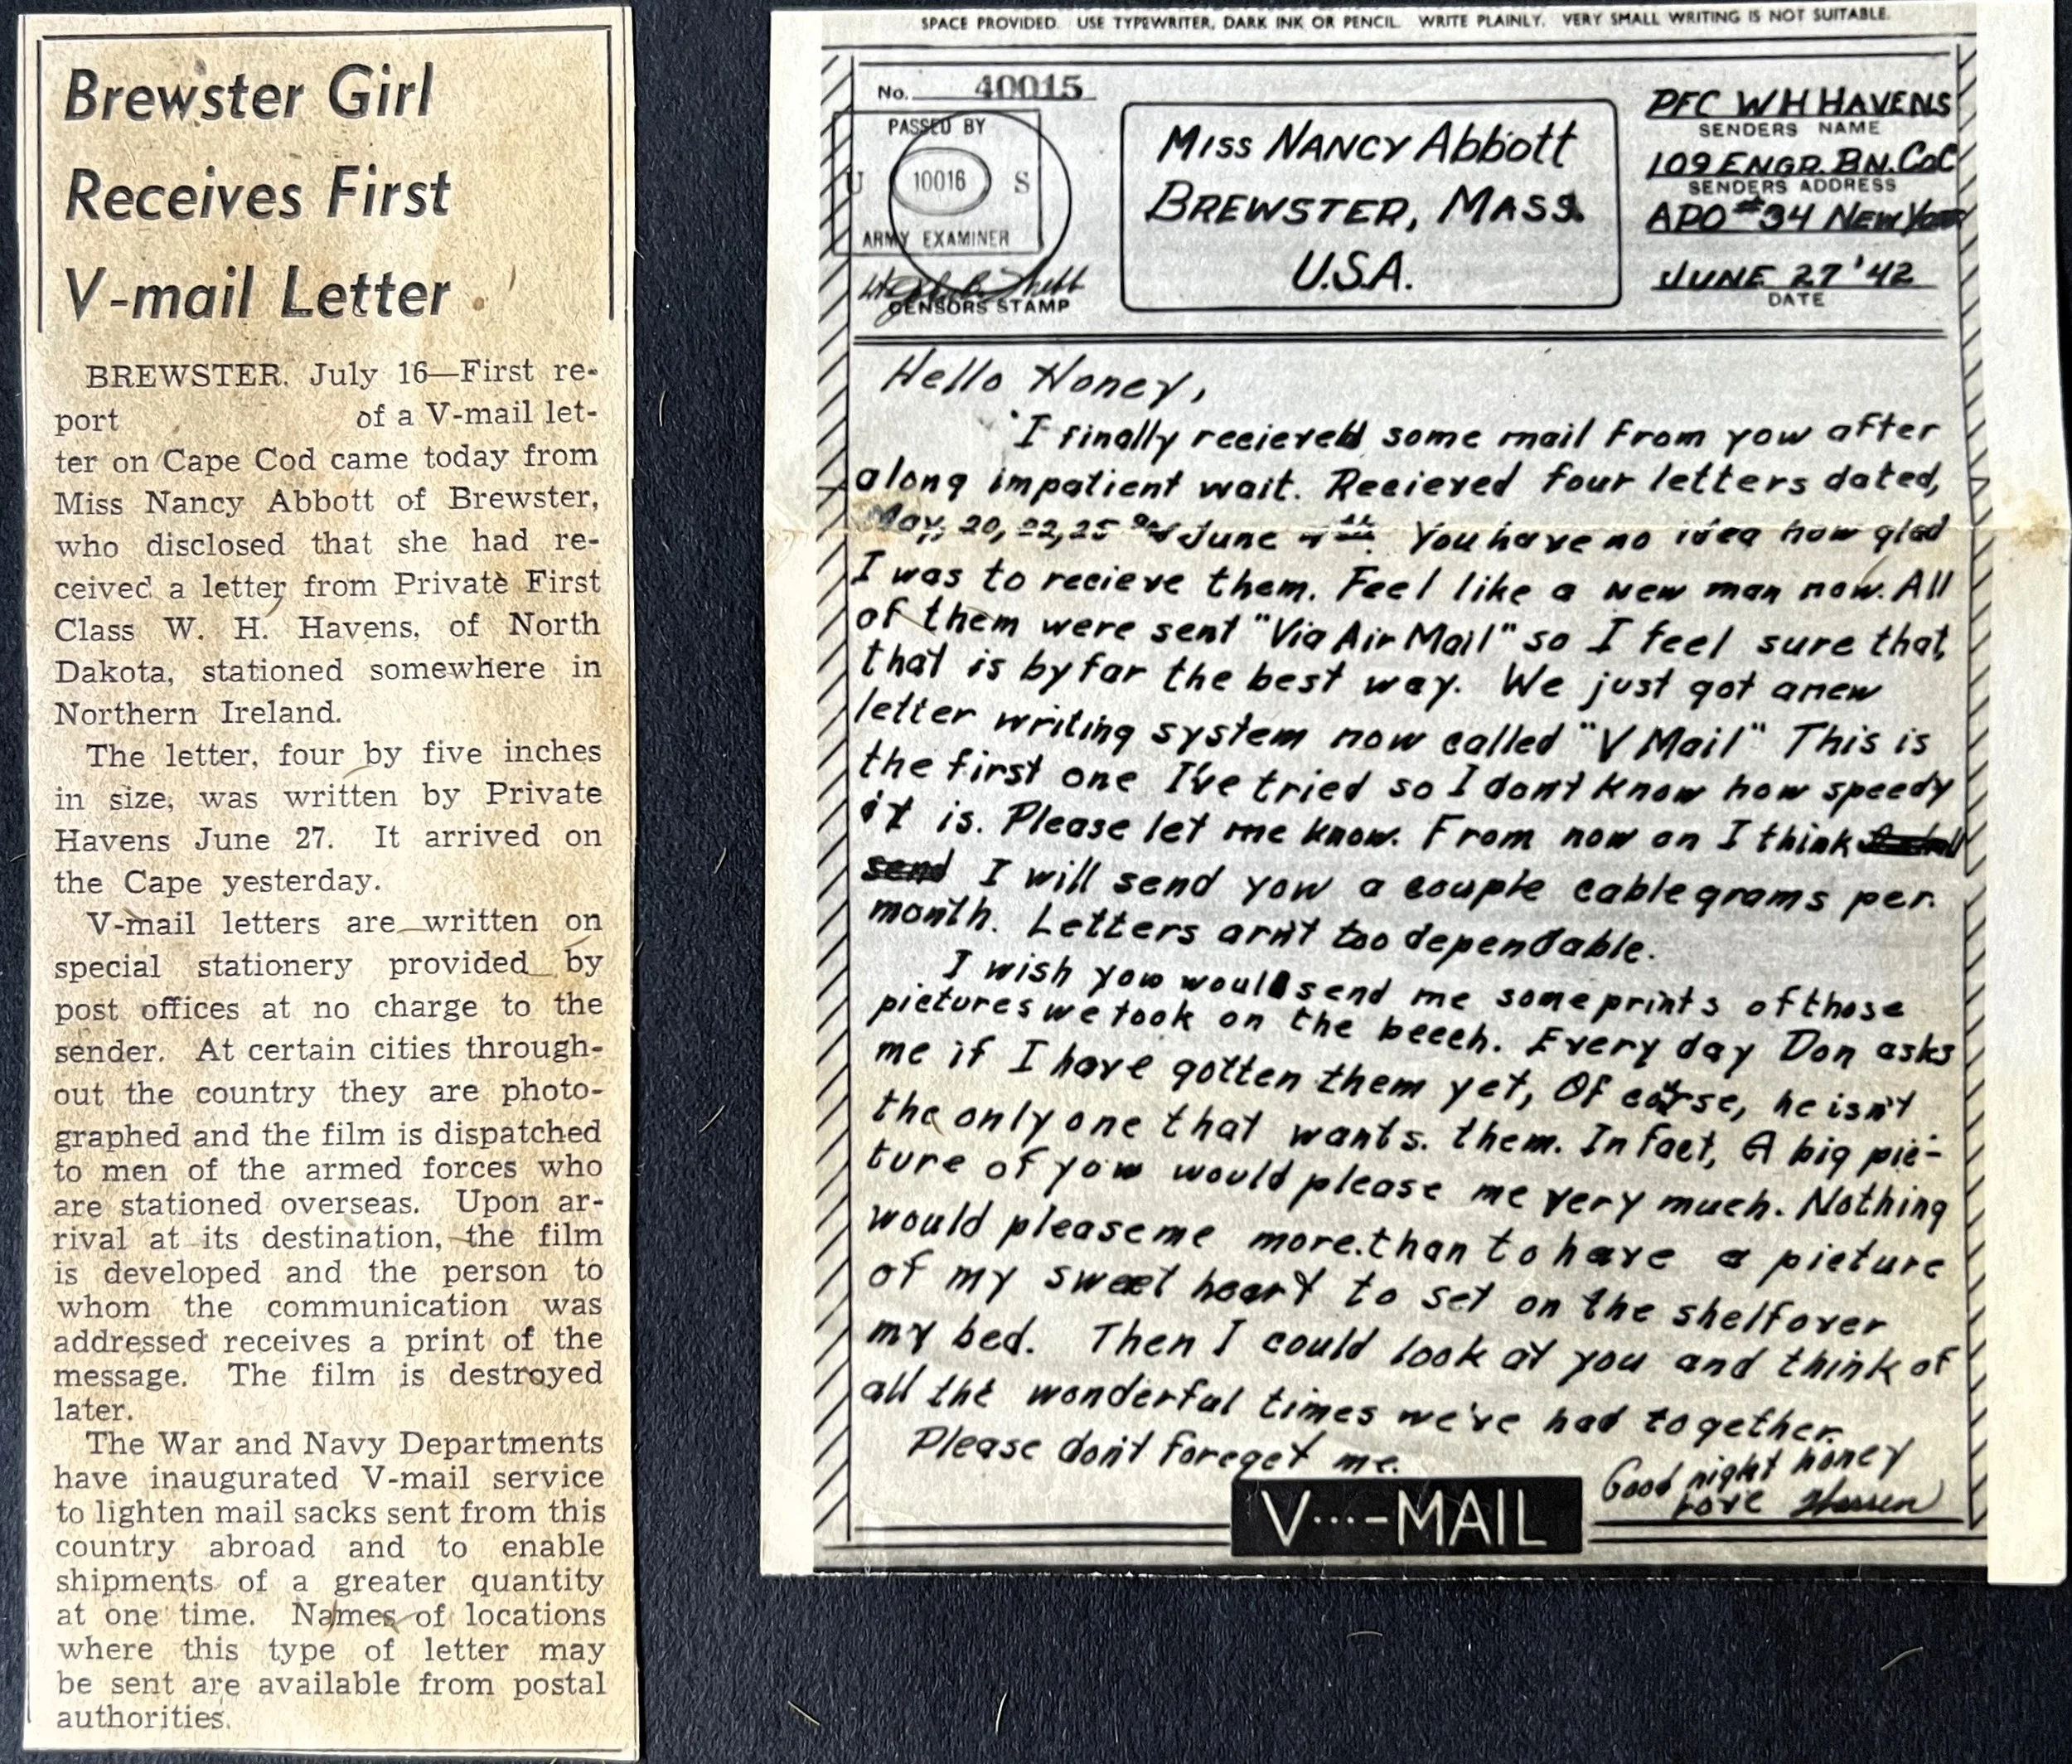 Brewster Girl
Receives First
V-mail Letter
BREWSTER. July 16—First re-
port of a V-mail let-
ter on Cape Cod came today from
Miss Nancy Abbott of Brewster,
who disclosed that she had re-
ceived a letter from Private First
Class W. H. Havens, of North
Dakota, stationed somewhere in
Northern Ireland.
The letter, four by five inches
in size, was written by Private
Havens June 27. It arrived on
the Cape yesterday.
V-mail letters are written on
special stationery provided by
post offices at no charge to the
sender. At certain cities through-
out the country they are photo-
graphed and the film is dispatched
to men of the armed forces who
are stationed overseas. Upon ar-
rival at its destination, the film
is developed and the person to
whom the communication was
addressed receives a print of the
message. The film is destroyed
later.
The War and Navy Departments
have inaugurated V-mail service
to lighten mail sacks sent from this
country abroad and to enable
shipments of a greater quantity
at one time. Names of locations
where this type of letter may
be sent are available from postal
authorities.
SPACE PROVIDED. USE TYPEWRITER, DARK INK OR PENCIL. WRITE PLAINLY. VERY SMALL WRITING IS NOT SUITABLE.
No. 40015
PASSED BY
U 10016 S
ARMY EXAMINER
CENSORS STAMP
Miss NANCY Abbott
BREWSTER, MASS.
U.S.A.
PFC W H HAVENS
SENDERS NAME
109 ENGR. BN. Co C
SENDERS ADDRESS
APO #34 NEW YORK
JUNE 27 '42
DATE
Hello Honey,
I finally recieved some mail from you after
along impatient wait. Recieved four letters dated,
May, 20, 22, 25 and June You have no idea how glad
I was to recieve them. Feel like a new man now. All
of them were sent "Via Air Mail" so I feel sure that,
that is by far the best way. We just got anew
letter writing system now called "V Mail" This is
the first one I've tried so I dont know how speedy
it is. Please let me know. From now on I think
send I will send you a couple cablegrams per
month. Letters arn't too dependable.
I wish you would send me some prints of those
pictures we took on the beech. Every day Don asks
me if I have gotten them yet, Of corse, he isn't
the only one that wants. them. In fact, A big pic-
ture of you would please me very much. Nothing
would please me more. than to have a picture
of my sweet heart to set on the shelf over
my bed. Then I could look at you and think of
all the wonderful times we've had together.
Please don't foreget me.
Good night honey
Love
V···-MAIL